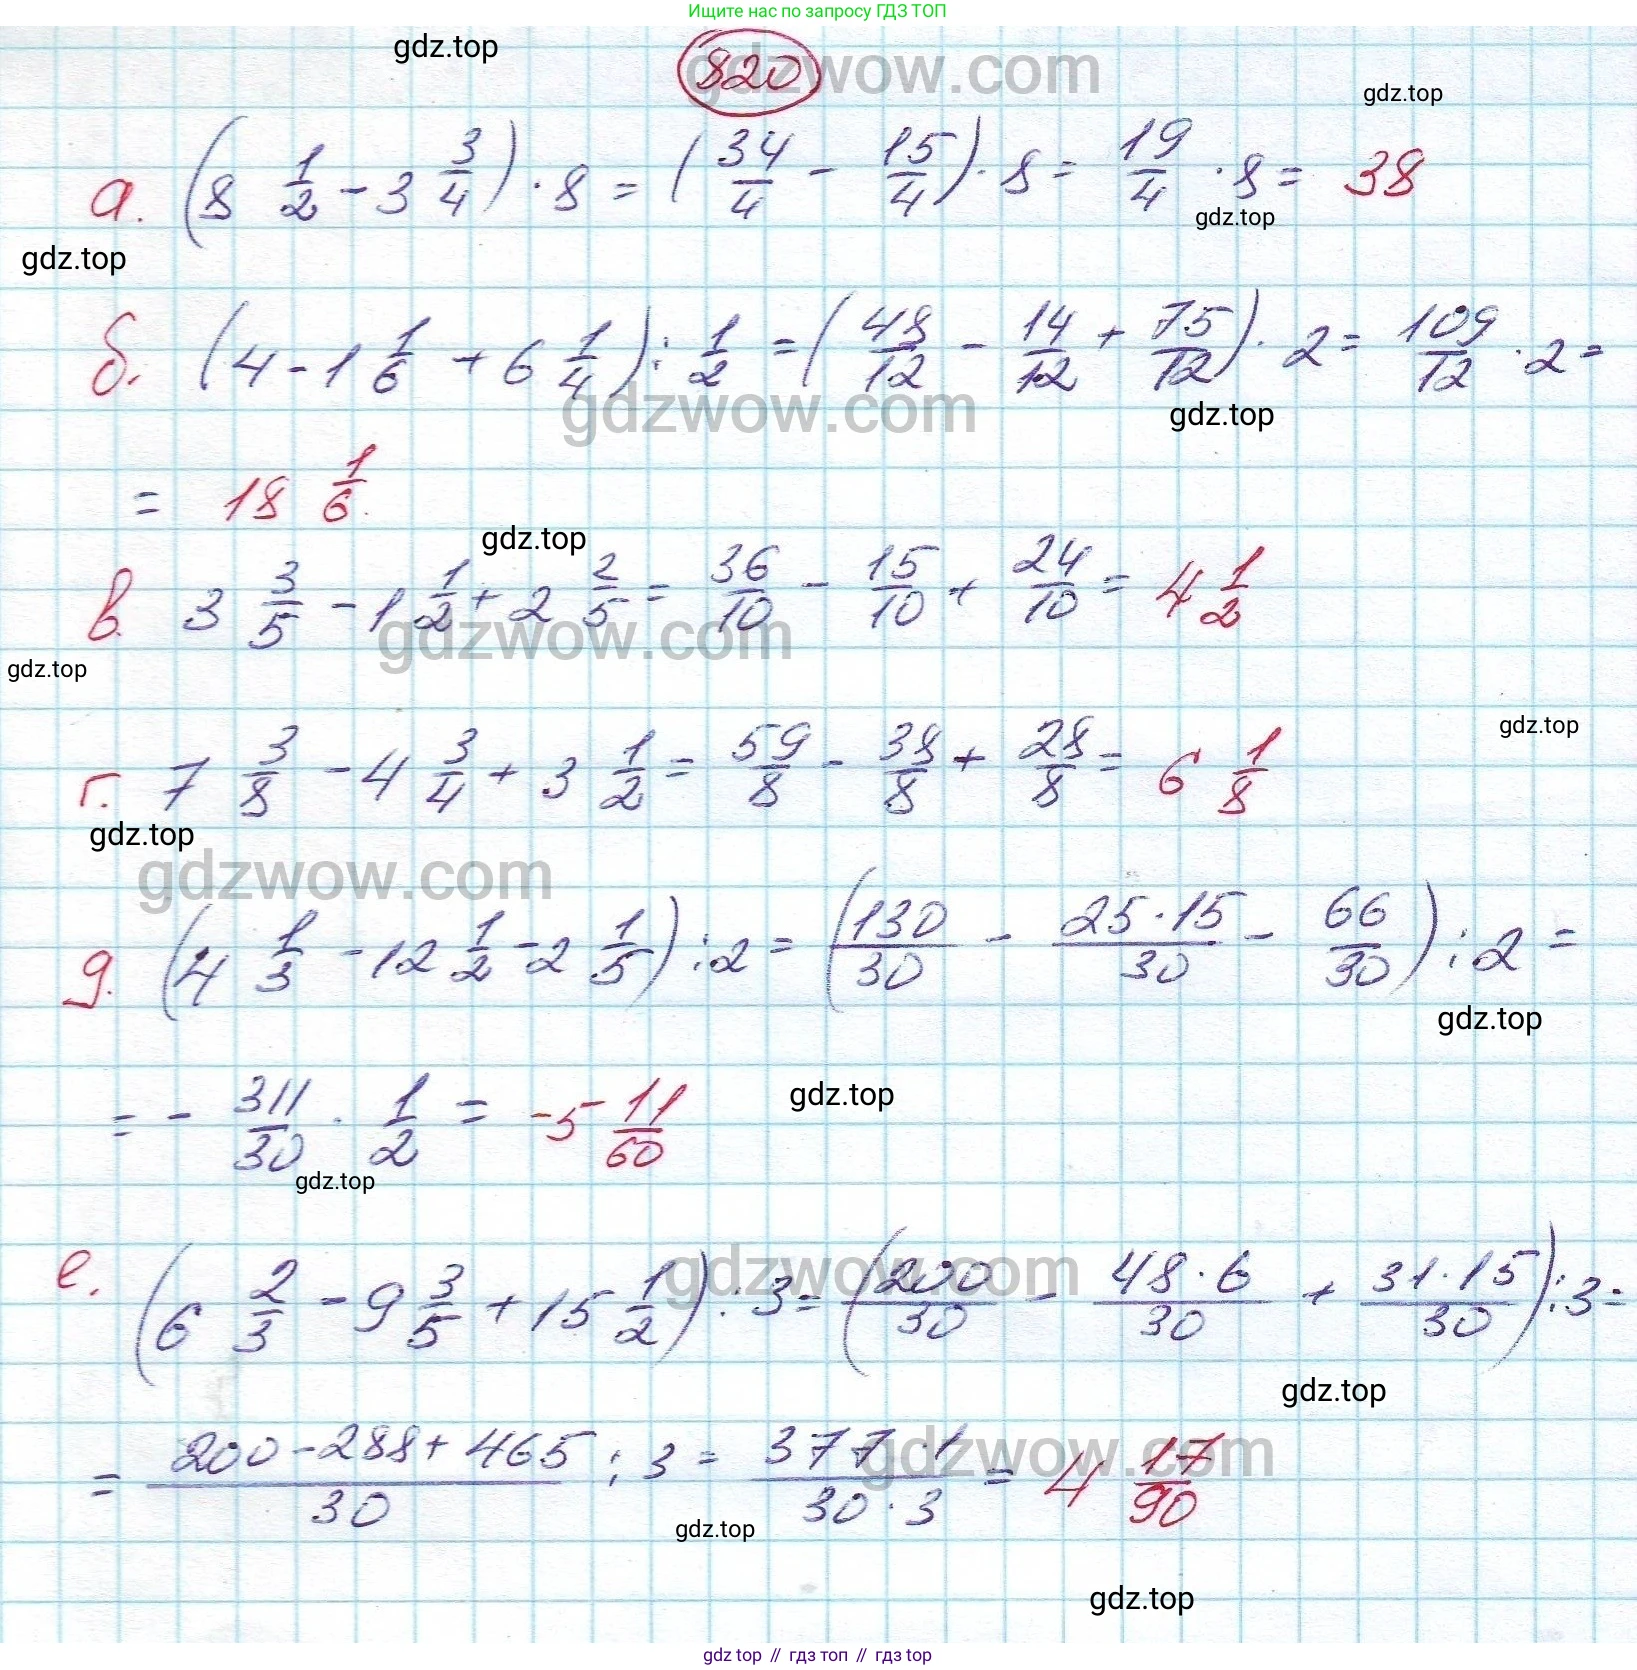 Ищите нас по запросу ГДЗ ТОП
gdz.top
820
gdzwow.com
gdz.top
а. (8 1/2 - 3 3/4) · 8 = (34/4 - 15/4) · 8 = 19/4 · 8 = 38
gdz.top
gdz.top
б. (4 - 1 1/6 + 6 1/4) : 1/2 = (48/12 - 14/12 + 75/12) · 2 = 109/12 · 2 =
gdzwow.com
gdz.top
= 18 1/6.
gdz.top
в. 3 3/5 - 1 1/2 + 2 2/5 = 36/10 - 15/10 + 24/10 = 4 1/2
gdzwow.com
gdz.top
gdz.top
г. 7 3/8 - 4 3/4 + 3 1/2 = 59/8 - 38/8 + 28/8 = 6 1/8
gdz.top
gdzwow.com
д. (4 1/3 - 12 1/2 - 2 1/5) : 2 = (130/30 - 25·15/30 - 66/30) : 2 =
gdz.top
= - 311/30 · 1/2 = -5 11/60
gdz.top
gdz.top
gdzwow.com
е. (6 2/3 - 9 3/5 + 15 1/2) : 3 = (200/30 - 48·6/30 + 31·15/30) : 3 =
gdz.top
= 200-288+465/30 : 3 = 377·1/30·3 = 4 17/90
gdzwow.com
gdz.top
gdz.top
gdz top // гдз топ // гдз top